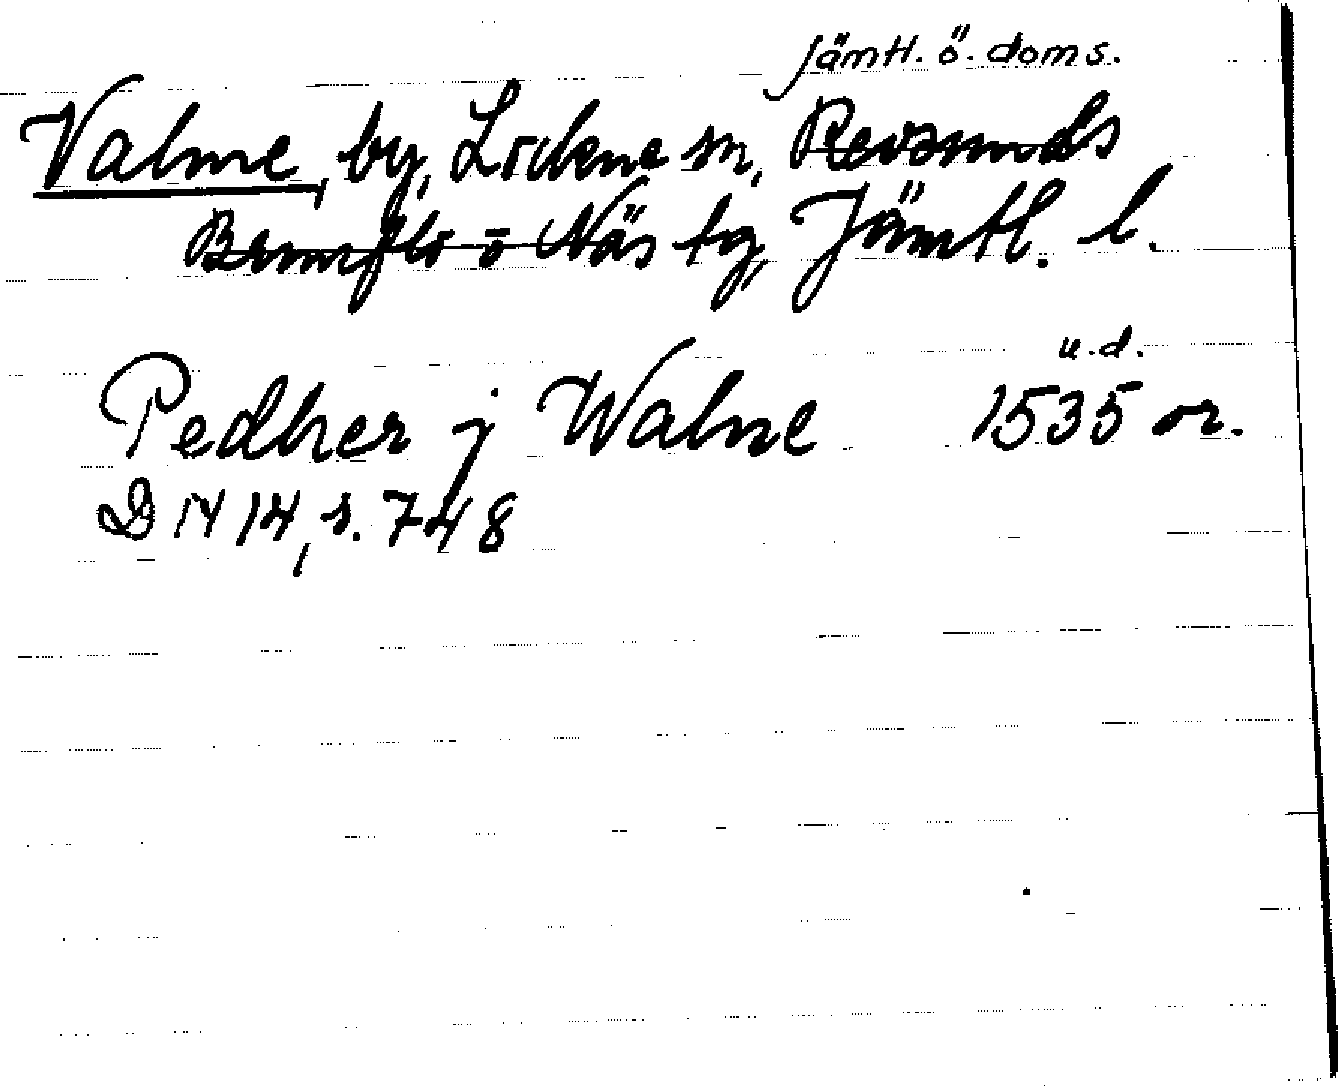 Jämtl. ö. doms.
Valne, by, Lockne sn, Revsunds
Brunflo o Näs tg, Jämtl. l.
u.d.
Pedher j Walne 1535 or.
DN 14, s. 748